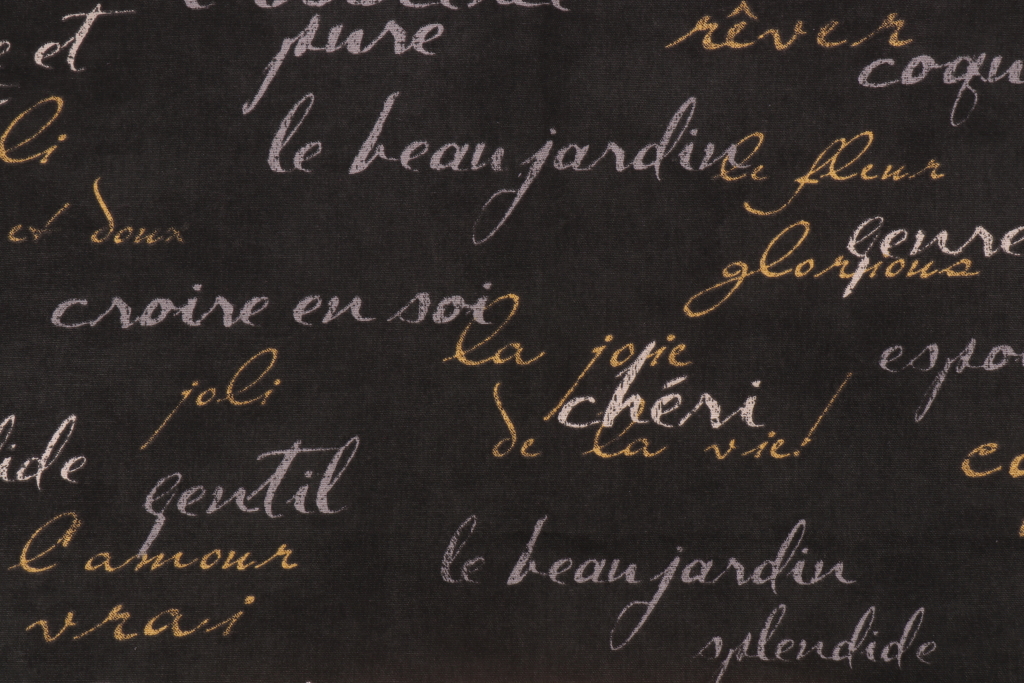 et
pure
rêver
coqu
le beau jardin
le fleur
li
et doux
genre
glorious
croire en soi
la joie
espo
joli
chéri
de la vie!
ide
gentil
l'amour
le beau jardin
vrai
splendide